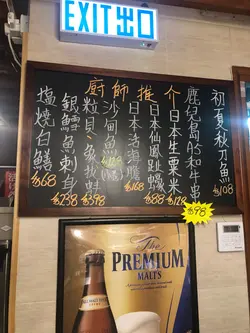 EXIT出口
廚師推介
初夏秋刀魚
$108
鹿兒島A5和牛串
$98
日本生粟米
$128
日本仙鳳趾蠔
$88
日本活海膽
$168
沙甸魚
$128
粒貝、象拔蚌
$398
銀鱈魚刺身
$238
塩燒白鱔
$68
The
PREMIUM
MALT'S